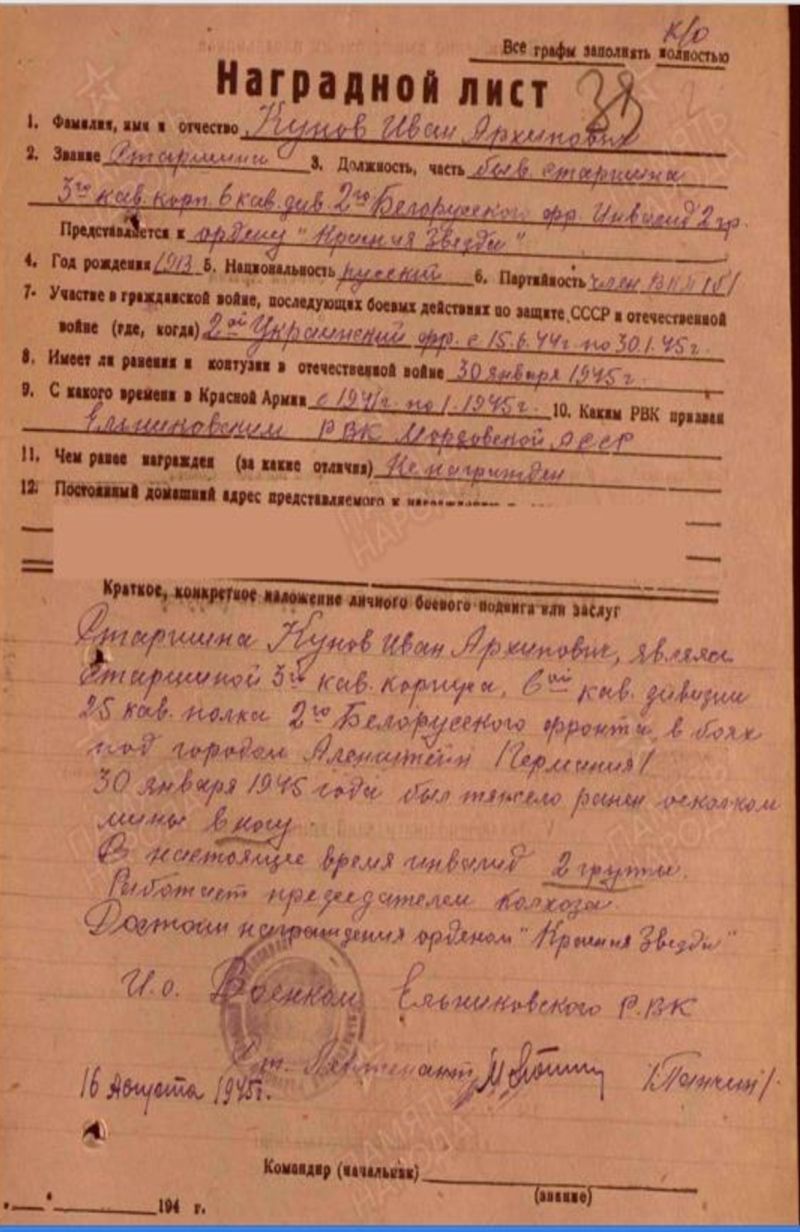 К/О
Все графы заполнять полностью
Наградной лист
1. Фамилия, имя и отчество Кунов Иван Архипович
2. Звание Старшина 3. Должность, часть быв. старшина
3го кав. корп. 6 кав. див. 2го Белорусского фр. Инвалид 2 гр.
Представляется к ордену "Красная Звезда"
4. Год рождения 1913 5. Национальность русский 6. Партийность член ВКП(б)
7. Участие в гражданской войне, последующих боевых действиях по защите СССР и отечественной
войне (где, когда) 2ой Украинский фр. с 15.6.44г. по 30.1.45г.
8. Имеет ли ранения и контузии в отечественной войне 30 января 1945г.
9. С какого времени в Красной Армии с 1941г. по 1.1945г. 10. Каким РВК призван
Ельниковским РВК Мордовской АССР
11. Чем ранее награжден (за какие отличия) Не награжден
12. Постоянный домашний адрес представляемого к
Краткое, конкретное изложение личного боевого подвига или заслуг
Старшина Кунов Иван Архипович, являясь
старшиной 3го кав. корпуса, 6ой кав. дивизии
25 кав. полка 2го Белорусского фронта, в боях
под городом Аленштейн /Германия/
30 января 1945 года был тяжело ранен осколком
мины в ногу.
В настоящее время инвалид 2 группы.
Работает председателем колхоза.
Достоин награждения орденом "Красная Звезда"
И.о. Военком Ельниковского РВК
Ст. Лейтенант
16 Августа 1945г.
Командир (начальник)
(звание)
194 г.
ПАМЯТЬ НАРОДА